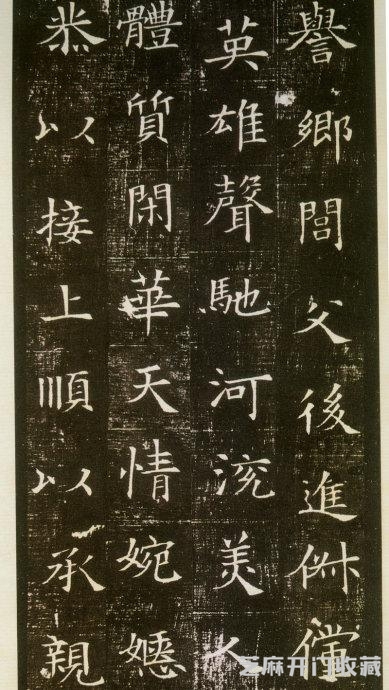 譽鄉閭父後進俶儻
英雄聲馳河沇美人
體質閑華天情婉嫕
恭以接上順以承親
芝麻开门收藏